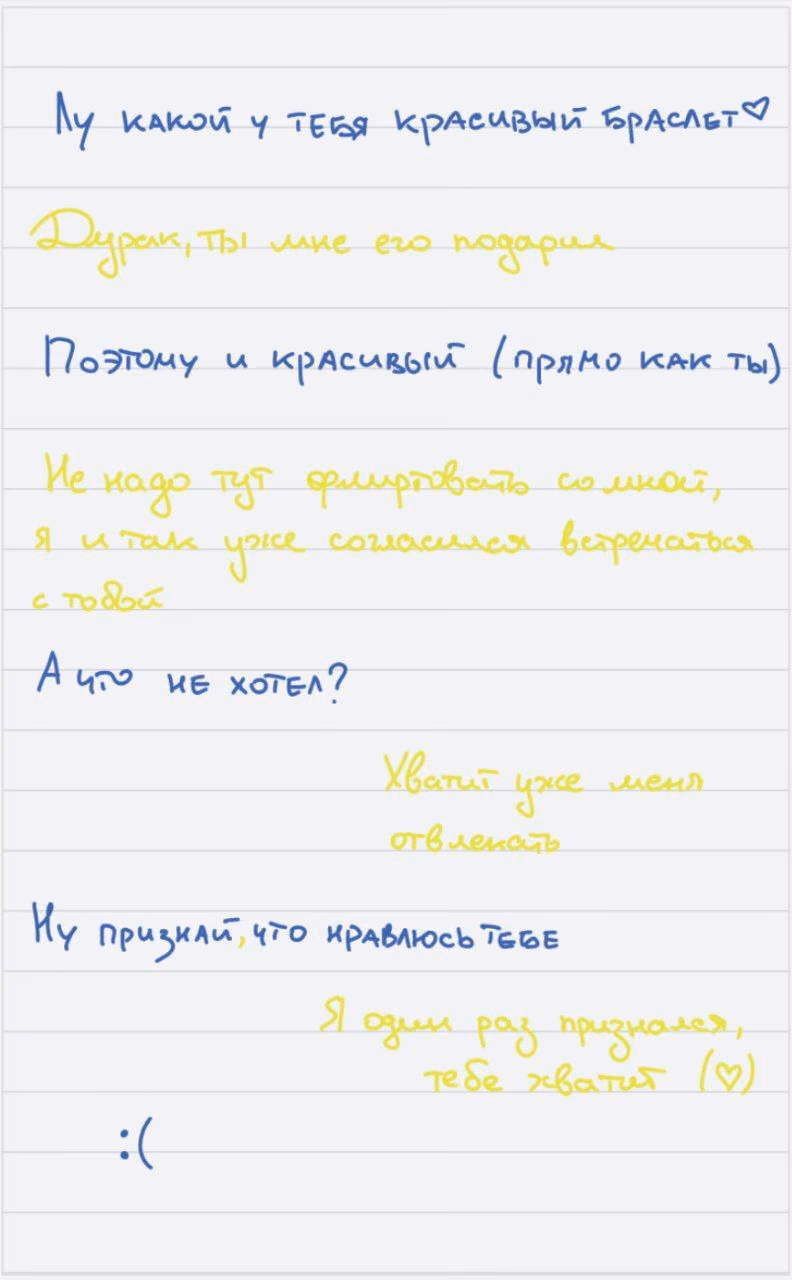 Лу какой у тебя красивый браслет♡
Дурак, ты мне его подарил
Поэтому и красивый (прямо как ты)
Не надо тут флиртовать со мной,
я и так уже согласился встречаться
с тобой
А что не хотел?
Хватит уже меня
отвлекать
Ну признай, что нравлюсь тебе
Я один раз признался,
тебе хватит (♡)
:(